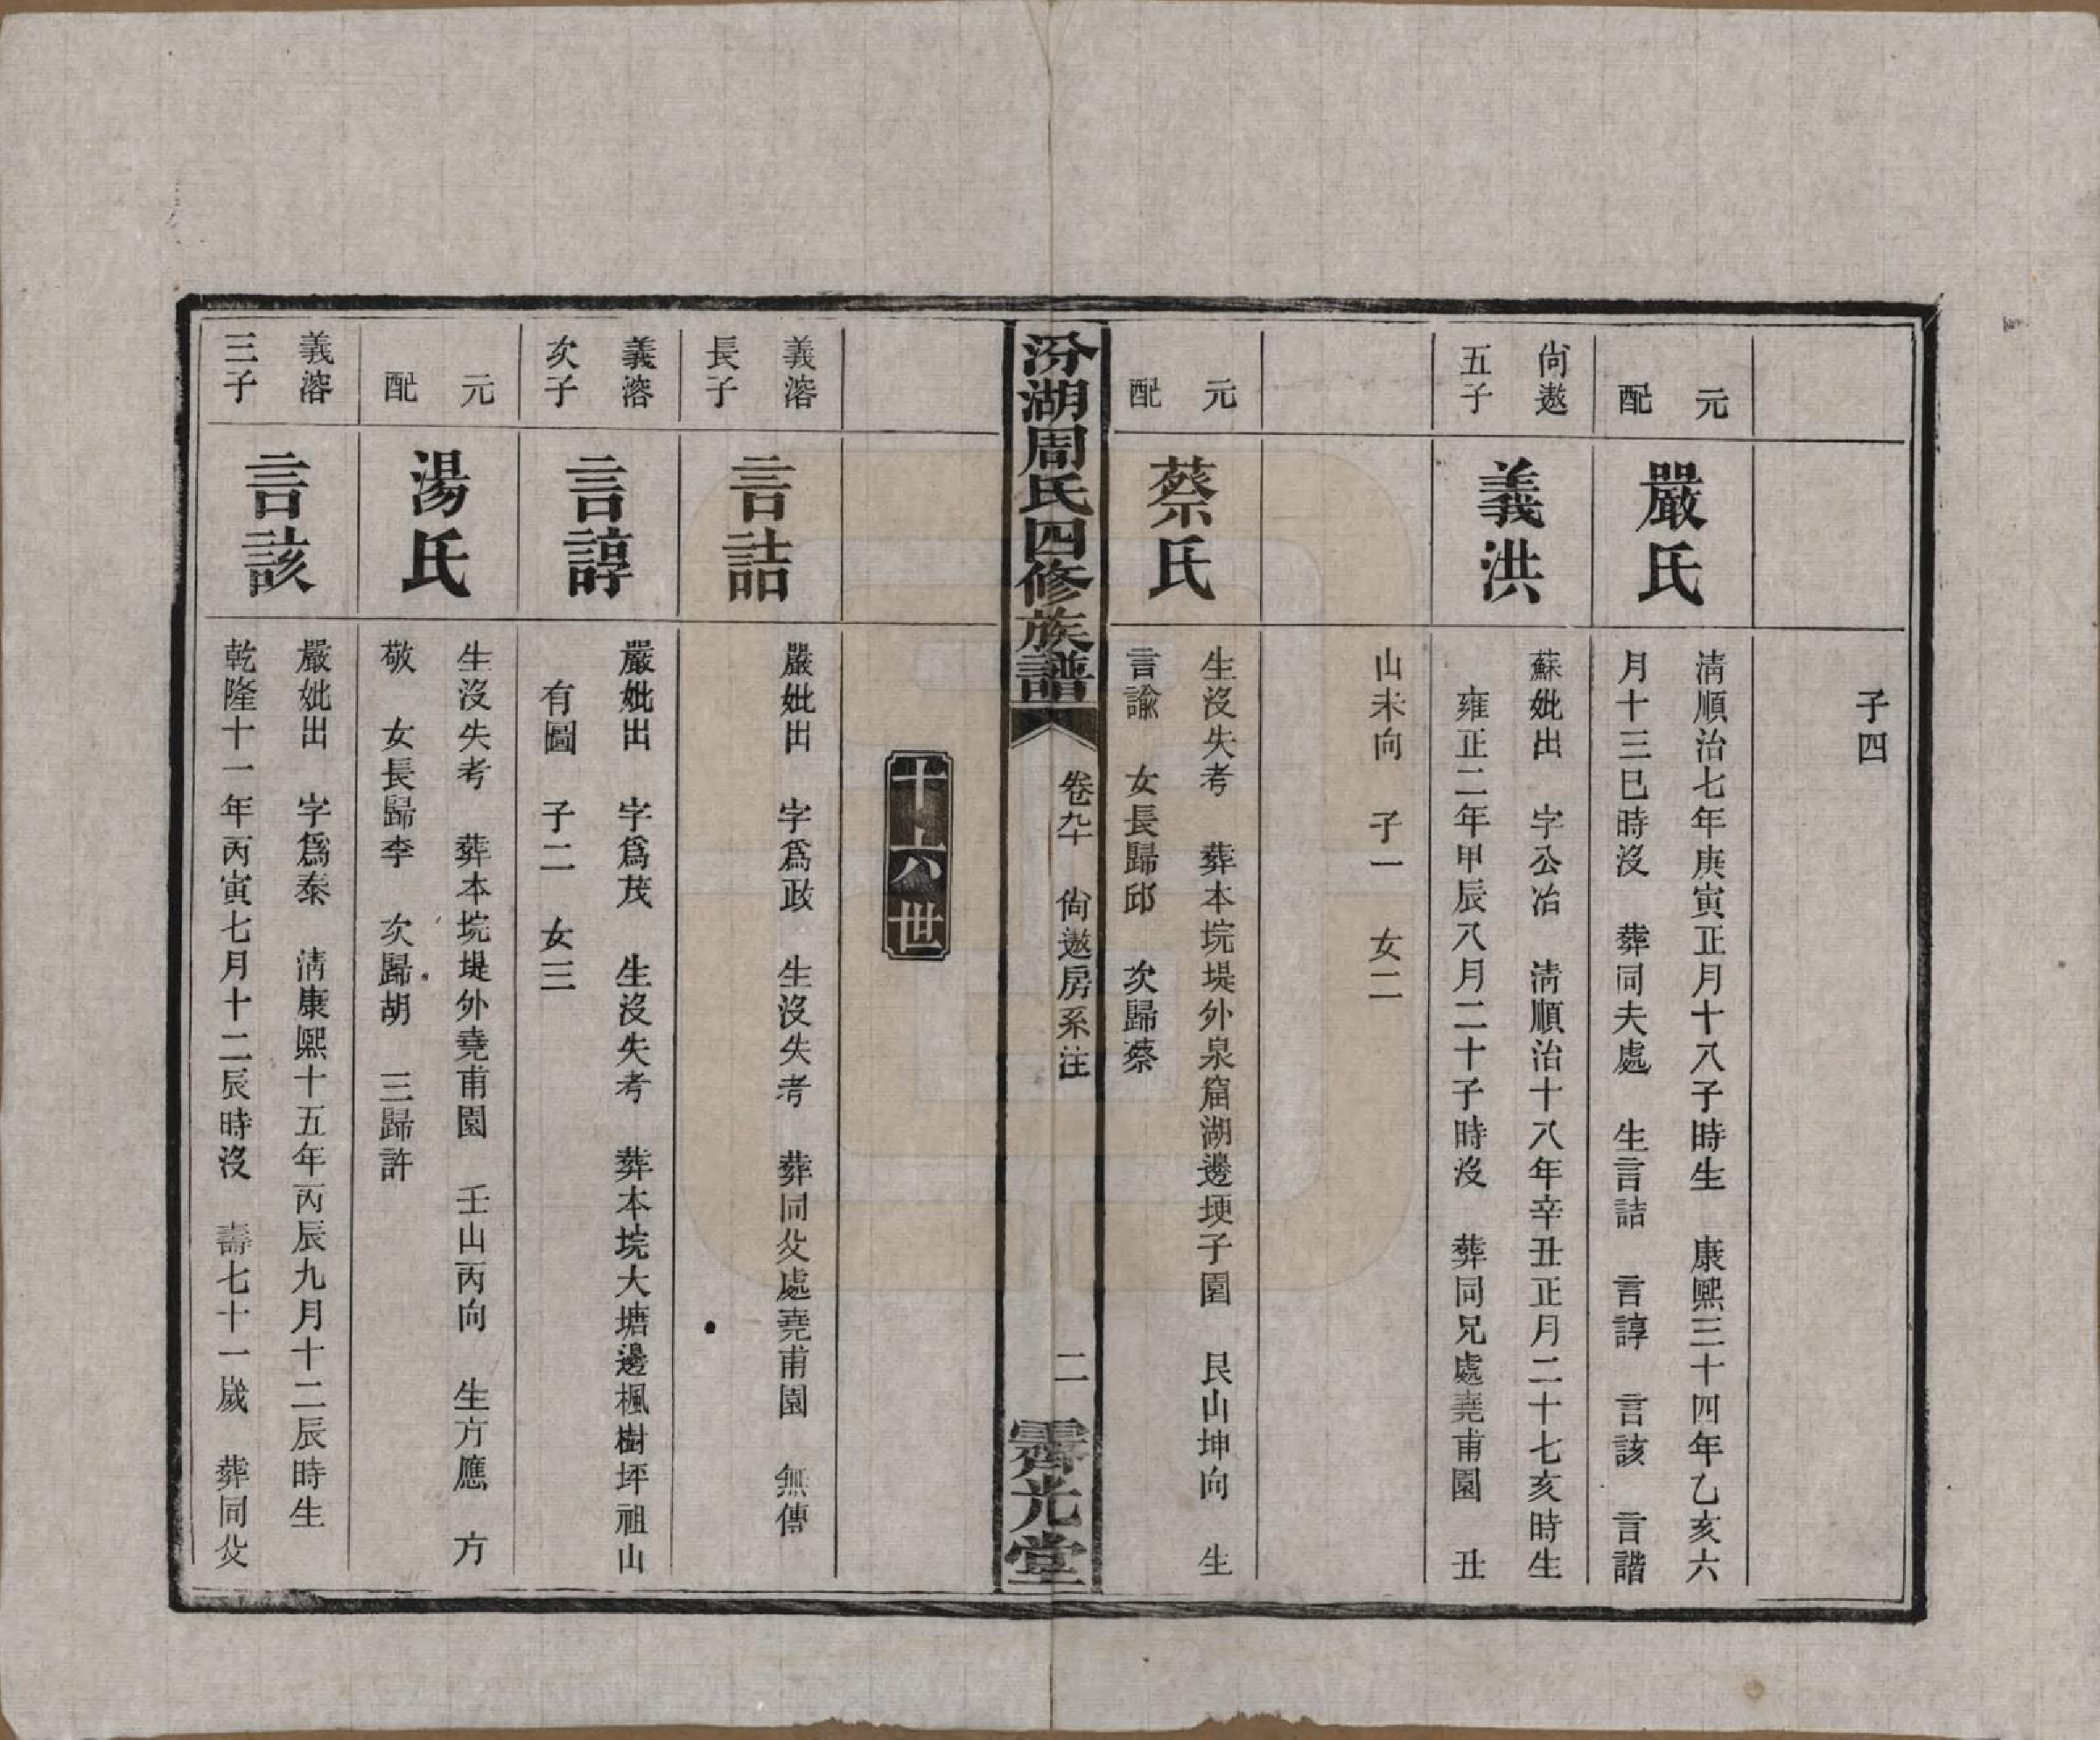 子四
元
配
嚴氏
淸順治七年庚寅正月十八子時生　康熙三十四年乙亥六
月十三巳時沒　葬同夫處　生言詰　言諄　言該　言諧
尙遨
五子
義洪
蘇妣出　字公冶　淸順治十八年辛丑正月二十七亥時生
雍正二年甲辰八月二十子時沒　葬同兄處堯甫園　丑
山未向　子一　女二
元
配
蔡氏
生沒失考　葬本垸堤外泉窟湖邊埂子園　艮山坤向　生
言諭　女長歸邱　次歸蔡
汾湖周氏四修族譜
卷九十　尙遨房系注
二
霽光堂
十六世
義溶
長子
言詰
嚴妣出　字爲政　生沒失考　葬同父處堯甫園　無傳
義溶
次子
言諄
嚴妣出　字爲茂　生沒失考　葬本垸大塘邊楓樹坪祖山
有圖　子二　女三
元
配
湯氏
生沒失考　葬本垸堤外堯甫園　壬山丙向　生方應　方
敬　女長歸李　次歸胡　三歸許
義溶
三子
言該
嚴妣出　字爲泰　淸康熙十五年丙辰九月十二辰時生
乾隆十一年丙寅七月十二辰時沒　壽七十一歲　葬同父